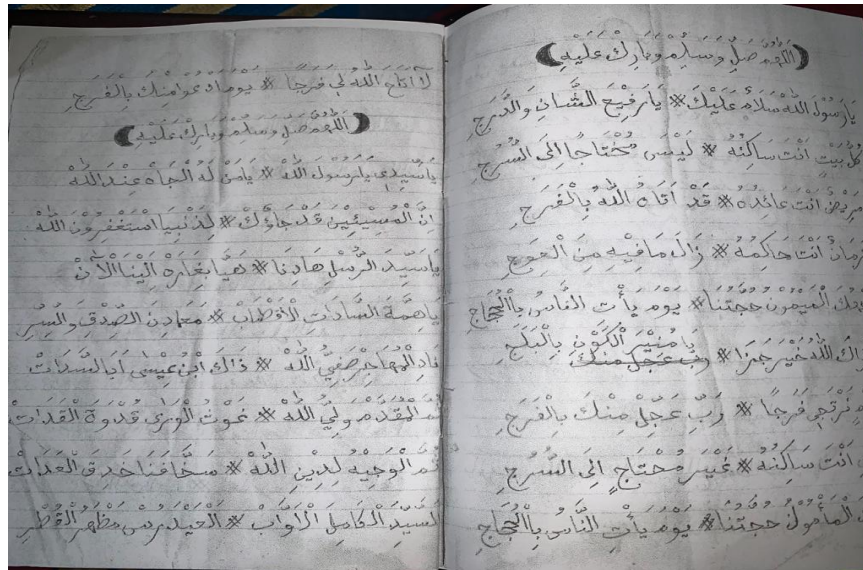 ﴿اَللّٰهُمَّ صَلِّ وَسَلِّمْ وَبَارِكْ عَلَيْهِ﴾
يَا رَسُوْلَ اللّٰهْ سَلَامٌ عَلَيْكَ # يَا رَفِيْعَ الشَّانِ وَالدَّرَجِ
بَيْتٍ اَنْتَ سَاكِنُهُ # لَيْسَ مُحْتَاجًا اِلَى السُّرُجِ
اَنْتَ عَائِدُهُ # قَدْ اَتَاهُ اللّٰهُ بِالْفَرَجِ
اَنْتَ حَاكِمُهُ # زَالَ مَا فِيْهِ مِنَ الْعَوَجِ
الْمَيْمُوْنُ حُجَّتُنَا # يَوْمَ يَأْتِ النَّاسُ بِاالْحُجَاجِ
اللّٰهُ خَيْرَ جَزَا # يَا مُنِيْرَ الْكَوْنِ بِالْبَلَجِ
نَرْتَجِي فَرَجًا # رَبِّ عَجِّلْ مِنْكَ بِالْفَرَجِ
اَنْتَ سَاكِنُهُ # غَيْرَ مُحْتَاجٍ اِلَى السُّرُجِ
الْمَأْمُوْلُ حُجَّتُنَا # يَوْمَ يَأْتِ النَّاسُ بِاالْحُجَاجِ
لَا اَتَاحَ اللّٰهُ لِي فَرَجًا # يَوْمَ اَدْعُوْا مِنْكَ بِالْفَرَجِ
﴿اَللّٰهُمَّ صَلِّ وَسَلِّمْ وَبَارِكْ عَلَيْهِ﴾
يَا سَيِّدِى يَا رَسُوْلَ اللّٰهْ # يَا مَنْ لَهُ الْجَاهْ عِنْدَ اللّٰهْ
اِنَّ الْمُسِيْئِيْنَ قَدْ جَاؤُكْ # لِذَنْبِهِمْ اسْتَغْفِرُوْنَ اللّٰهْ
يَا سَيِّدَ الرُّسْلِ هَادِيْنَا # هَيَّا بِغَارَهْ اِلَيْنَا الْآنْ
يَا هِمَّةَ السَّادَاتِ الْأَقْطَابْ # مَعَادِنَ الصِّدْقِ وَالسِّرِّ
نَادِ الْمُهَاجِرْ صَفِيَّ اللّٰهْ # ذَاكَ ابْنُ عِيْسٰى اَبَا السَّادَاتْ
ثُمَّ الْمُقَدَّمْ وَلِيَّ اللّٰهْ # غَوْثَ الْوَرٰى قُدْوَةَ الْقَدَاتْ
ثُمَّ الْوَجِيْهْ لِدِيْنِ اللّٰهْ # سَقَّافَنَا خَرِقَ الْعَدَاتْ
اَلسَّيِّدَ الْكَامِلَ الْأَوَّابْ # الْعَيْدَرُسْ مَظْهَرَ الْقُطْرِ